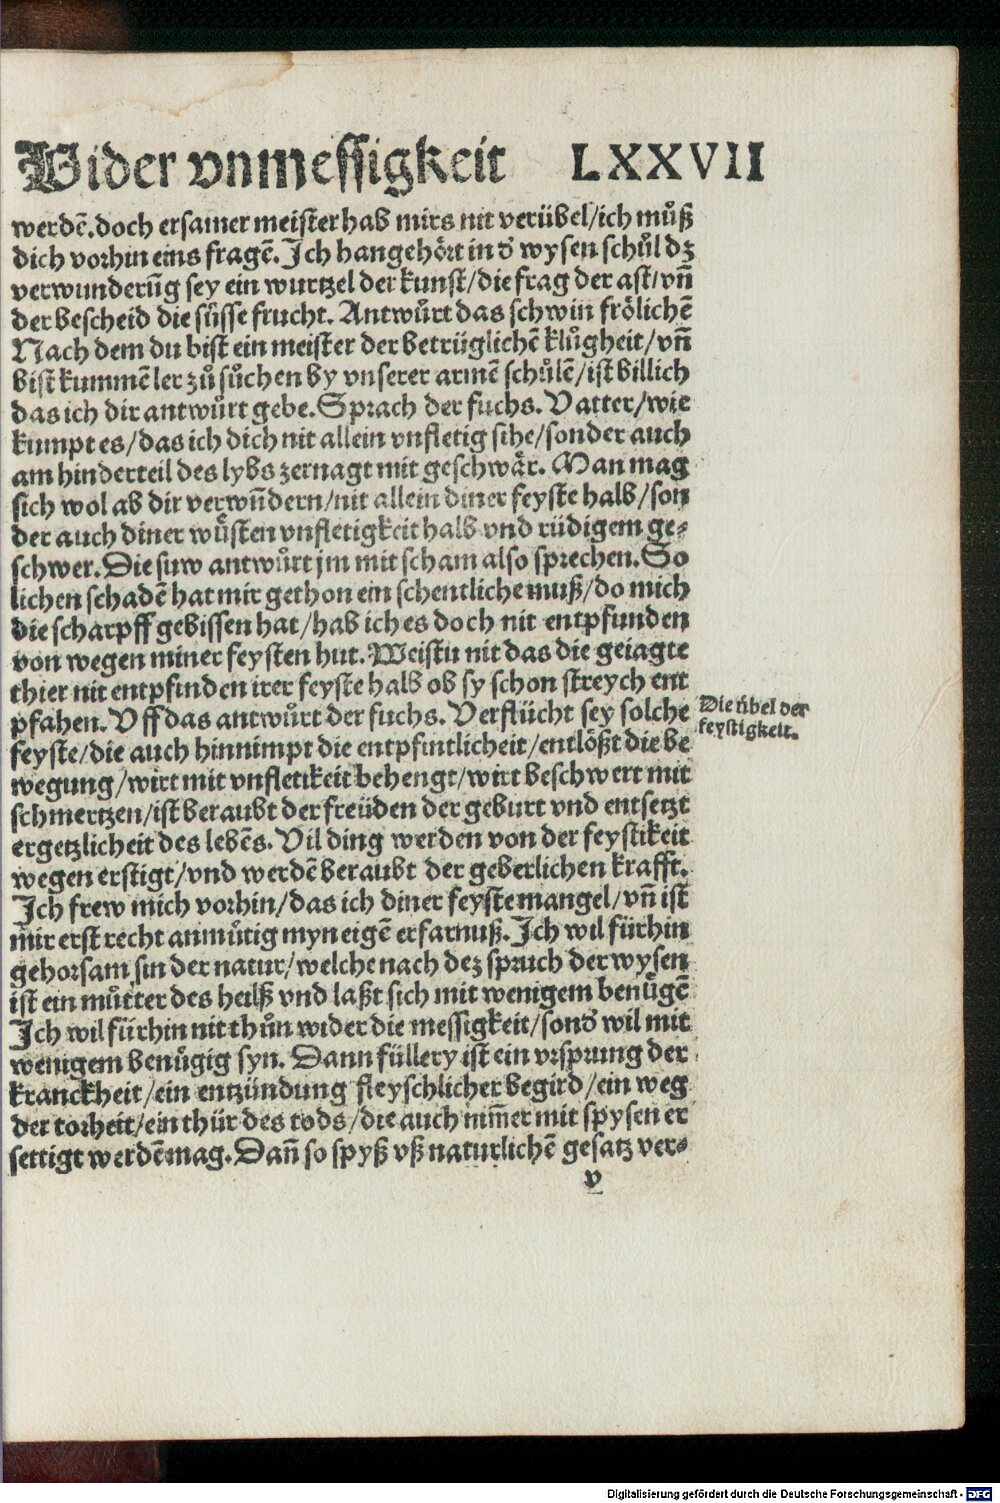 Wider vnmessigkeit LXXVII
werdē. doch ersamer meister hab mirs nit verübel/ich můß
dich vorhin eins fragē. Ich han gehört in đ wysen schůl dz
verwunderūg sey ein wurtzel der kunst/die frag der ast/vñ
der bescheid die süsse frucht. Antwůrt das schwin frölichē
Nach dem du bist ein meister der betrüglichē klůgheit/vñ
bist kummē ler zů sůchen by vnserer armē schůlē/ist billich
das ich dir antwůrt gebe. Sprach der fuchs. Vatter/wie
kumpt es/das ich dich nit allein vnfletig sihe/sonder auch
am hinderteil des lybs zernagt mit geschwår. Man mag
sich wol ab dir verwūdern/nit allein diner feyste halb/son
der auch diner wůsten vnfletigkeit halb vnd rüdigem ge⸗
schwer. Die suw antwůrt jm mit scham also sprechen. So
lichen schadē hat mir gethon ein schentliche muß/do mich
die scharpff gebissen hat/hab ich es doch nit entpfunden
von wegen miner feysten hut. Weistu nit das die geiagte
thier nit entpfinden irer feyste halb ob sy schon streych ent
pfahen. Vff das antwůrt der fuchs. Verflücht sey solche
feyste/die auch hinnimpt die entpfintlicheit/entlößt die be
wegung/wirt mit vnfletikeit behengt/wirt beschwert mit
schmertzen/ist beraubt der freüden der geburt vnd entsetzt
ergetzlicheit des lebēs. Vil ding werden von der feystikeit
wegen erstigt/vnd werdē beraubt der geberlichen krafft.
Ich frew mich vorhin/das ich diner feyste mangel/vñ ist
mir erst recht anmůtig myn eigē erfarnuß. Ich wil fürhin
gehorsam sin der natur/welche nach dez spruch der wysen
ist ein můtter des heilß vnd laßt sich mit wenigem benůgē
Ich wil fürhin nit thůn wider die messigkeit/sonđ wil mit
wenigem benůgig syn. Dann füllery ist ein vrsprung der
kranckheit/ein entzündung fleyschlicher begird/ein weg
der torheit/ein thür des tods/die auch nim̄er mit spysen er
settigt werdē mag. Dañ so spyß vß naturlichē gesatz ver⸗
v
Die übel der
feystigkeit.
Digitalisierung gefördert durch die Deutsche Forschungsgemeinschaft - DFG